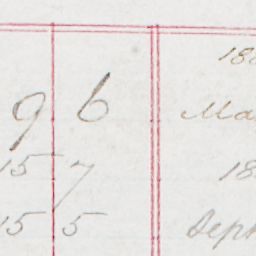 9 6
Ma
15 7
18
15 5 Sept